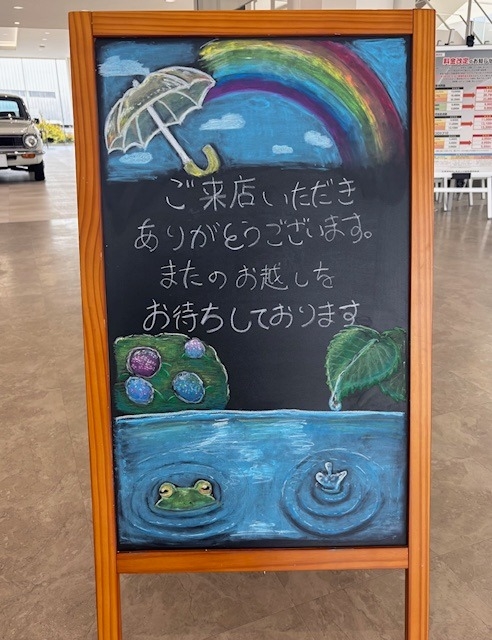 ご来店いただき
ありがとうございます。
またのお越しを
お待ちしております
料金改定のお知らせ